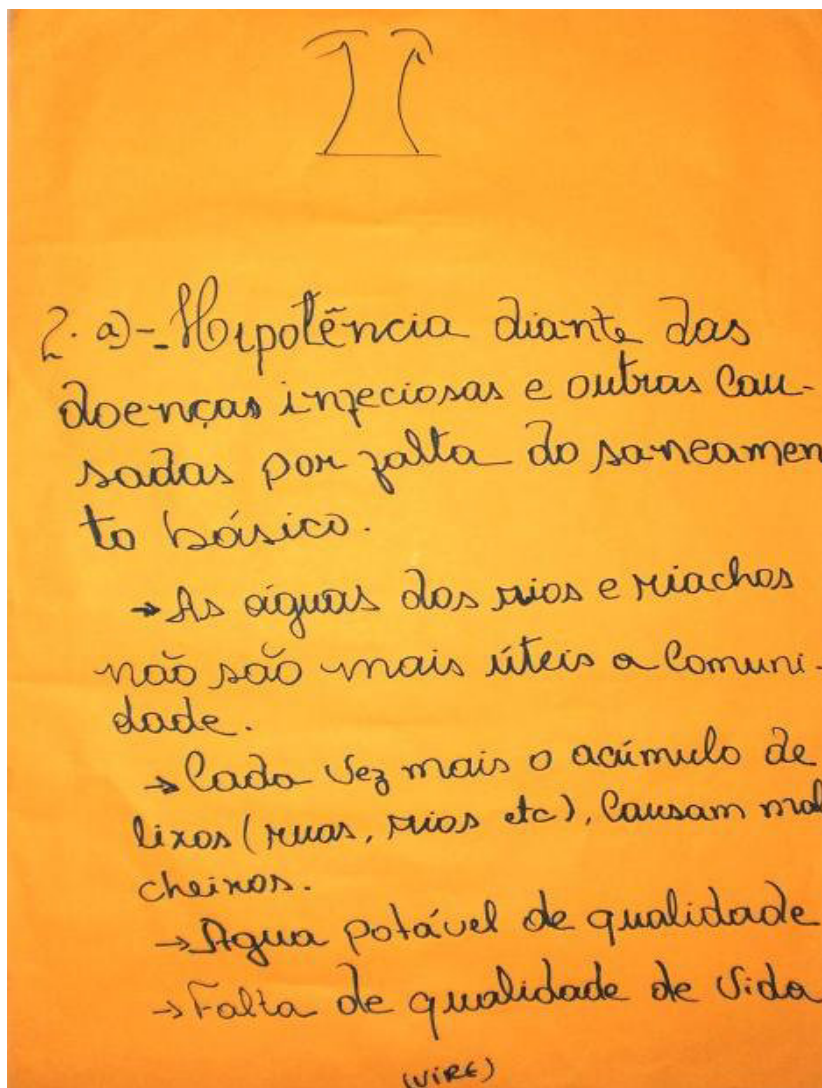 2. a)- Hipotência diante das
doenças infeciosas e outras cau-
sadas por falta do saneamen
to básico.
→ As águas dos rios e riachos
não são mais úteis a comuni-
dade.
→ Cada vez mais o acúmulo de
lixos (ruas, rios etc), causam mal
cheiros.
→ Água potável de qualidade
→ Falta de qualidade de vida
(VIRE)